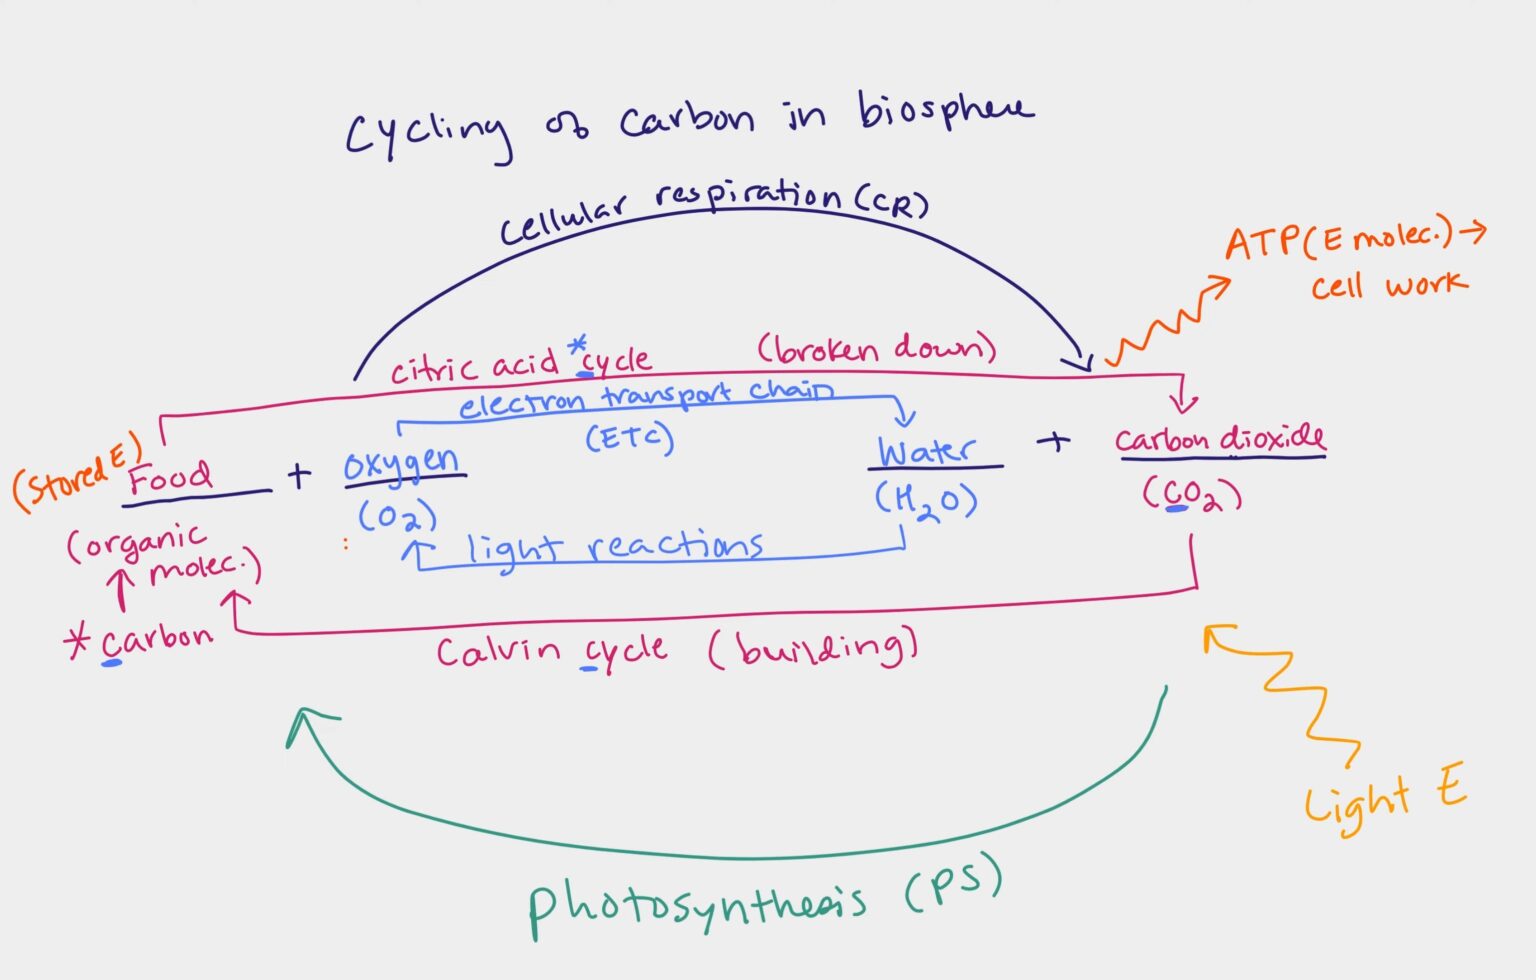 Cycling of carbon in biosphere
cellular respiration (CR)
ATP (E molec.) →
cell work
citric acid *cycle (broken down)
electron transport chain
(ETC)
(stored E)
Food + oxygen
Water + carbon dioxide
(O2)
(H2O)
(CO2)
(organic
molec.)
light reactions
*carbon
Calvin cycle (building)
Light E
Photosynthesis (PS)